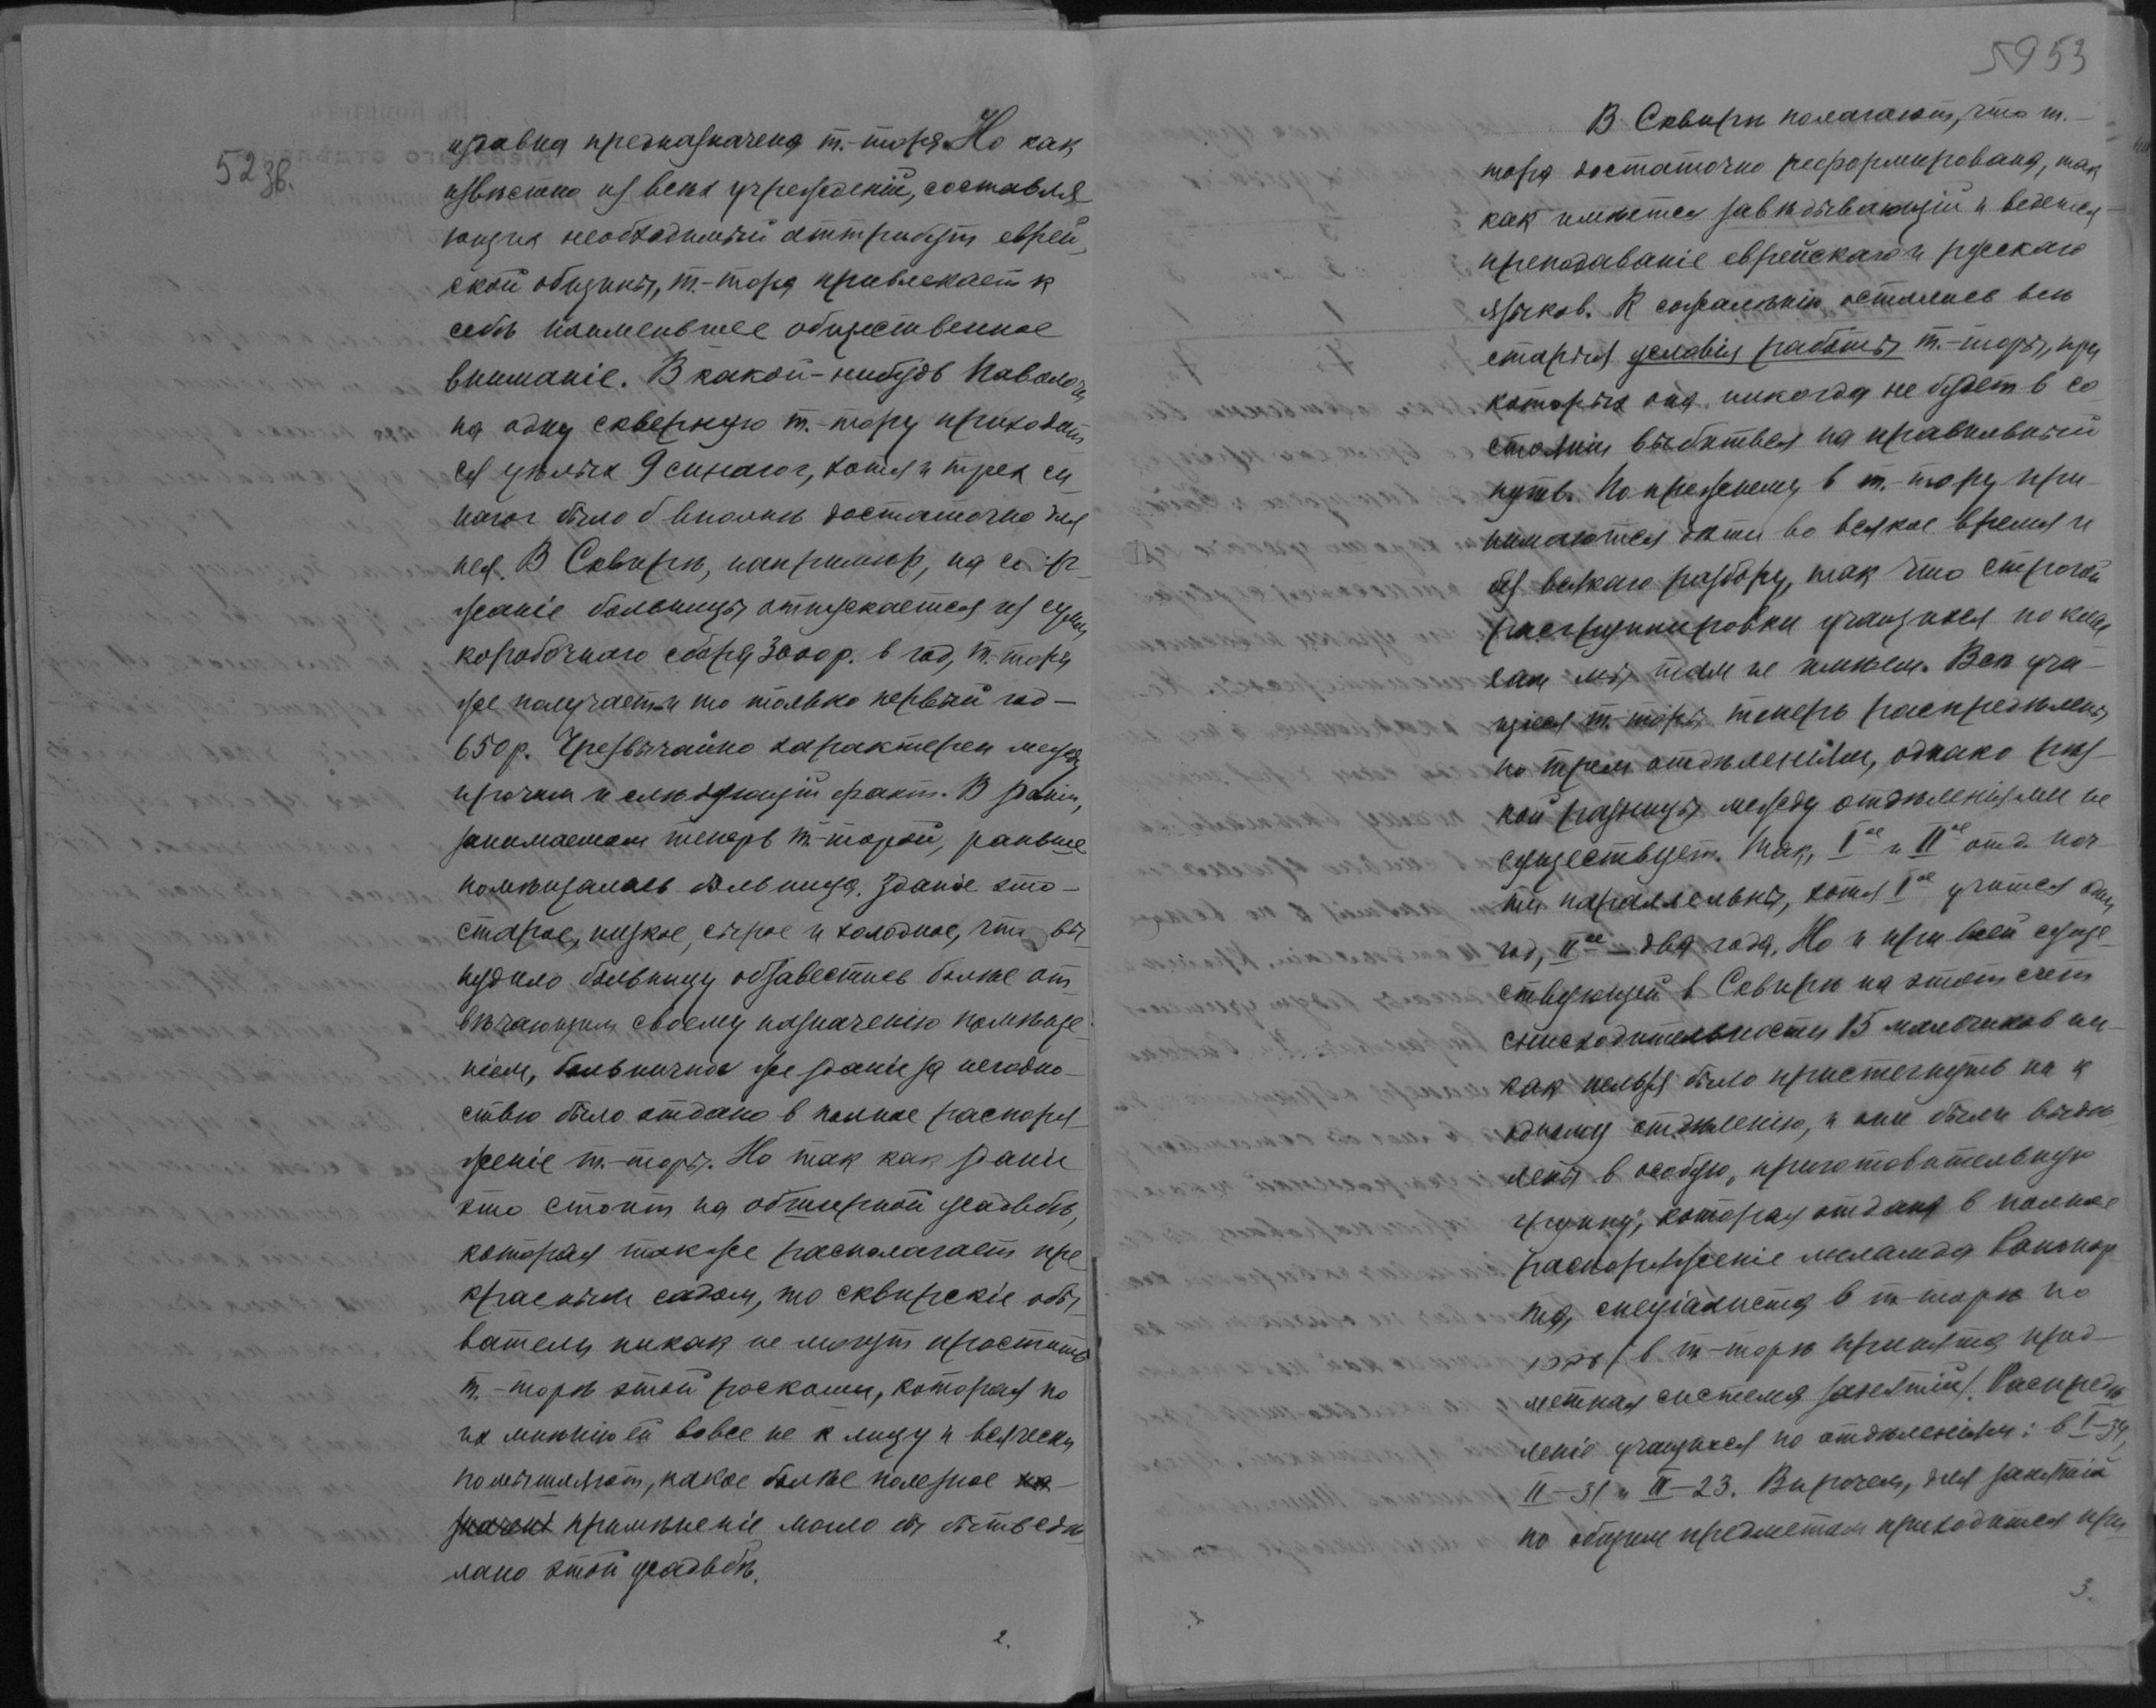 52 зв.
издавна предназначена т.-тора. Но как
извѣстно из всѣх учреждений, составля-
ющих необходимый аттрибут еврей-
ской общины, т.-тора привлекает к
себѣ наименьшее общественное
вниманіе. В какой-нибудь Паволочи
на одну скверную т.-тору приходит-
ся цѣлых 9 синагог, хотя и трех си-
нагог было б вполнѣ достаточно для
нея. В Сквирѣ, напримѣр, на содер-
жаніе больницы отпускается из сумм
коробочнаго сбора 3000 р. в год, т.-тора
же получает и то только первый год —
650 р. Чрезвычайно характерен между
прочим и слѣдующій факт. В зданіи,
занимаемом теперь т.-торой, раньше
помѣщалась больница. Зданіе это —
старое, низкое, сырое и холодное, что вы-
нудило больницу обзавестись болѣе от-
вѣчающим своему назначенію помѣще-
ніем, больничное же зданіе за негодно-
стью было отдано в полное распоря-
женіе т.-торы. Но так как зданіе
это стоит на обширной усадьбѣ,
которая также располагает пре-
красным садом, то сквирскіе обы-
ватели никак не могут простить
т.-торѣ этой роскоши, которая по
их мнѣнію ей вовсе не к лицу и всячески
помышляют, какое болѣе полезное на-
значені примѣненіе могло бы быть сдѣ-
лано этой усадьбѣ.
2.
5953
В Сквирѣ полагают, что т.-
тора достаточно реформирована, так
как имѣется завѣдывающій и ведется
преподаваніе еврейскаго и русскаго
языков. К сожалѣнію остались всѣ
старыя условія работы т.-торы, при
которых она никогда не будет в со-
стояніи выбиться на правильный
путь. По прежнему в т.-тору при-
нимаются дѣти во всякое время и
без всякаго разбору, так что строгой
расгруппировки учащихся по клас-
сам мы там не имѣем. Всѣ уча-
щіеся т.-торы теперь распредѣлены
по трем отдѣленіям, однако рѣз-
кой разницы между отдѣленіями не
существует. Так, I-ое и II-ое отд. поч-
ти параллельны, хотя I-ое учится один
год, II-ое — два года. Но и при всей суще-
ствующей в Сквирѣ на этот счет
снисходительности 15 мальчиков ни-
как нельзя было пристегнуть ни к
одному отдѣленію, и они были выдѣ-
лены в особую „приготовительную
группу", которая отдана в полное
распоряженіе меламда Рапопор-
та, спеціалиста в т-торѣ по
(в т-торѣ принята пред-
метная система занятій). Распредѣ-
леніе учащихся по отдѣленіям: в I–34,
II–31 и III–23. Впрочем, для занятій
по общим предметам приходится при-
3.